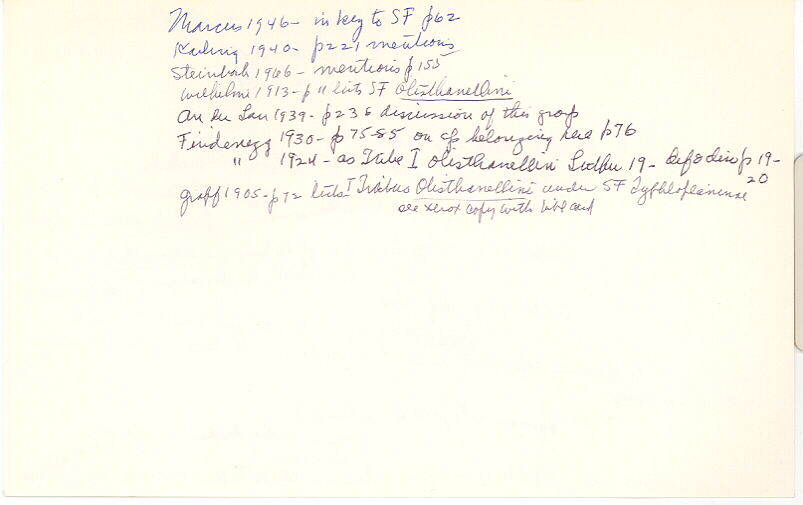 Marcus 1946 - in key to SF p62
1940 - p221 mentions
Steinbock 1966 - mentions p 155
Wilhelmi 1913 - p 11 lists SF Olisthanellini
An der Lan 1939 - p236 discussion of this group
Findenegg 1930 - p 75-85 on sp belonging here p76
" 1924 - as Tribe I Olisthanellini Luther 19 - def & disc p 19-20
Graff 1905 - p72 lists I Tribus Olisthanellini under SF Typhloplaninae
see xerox copy with bibl card